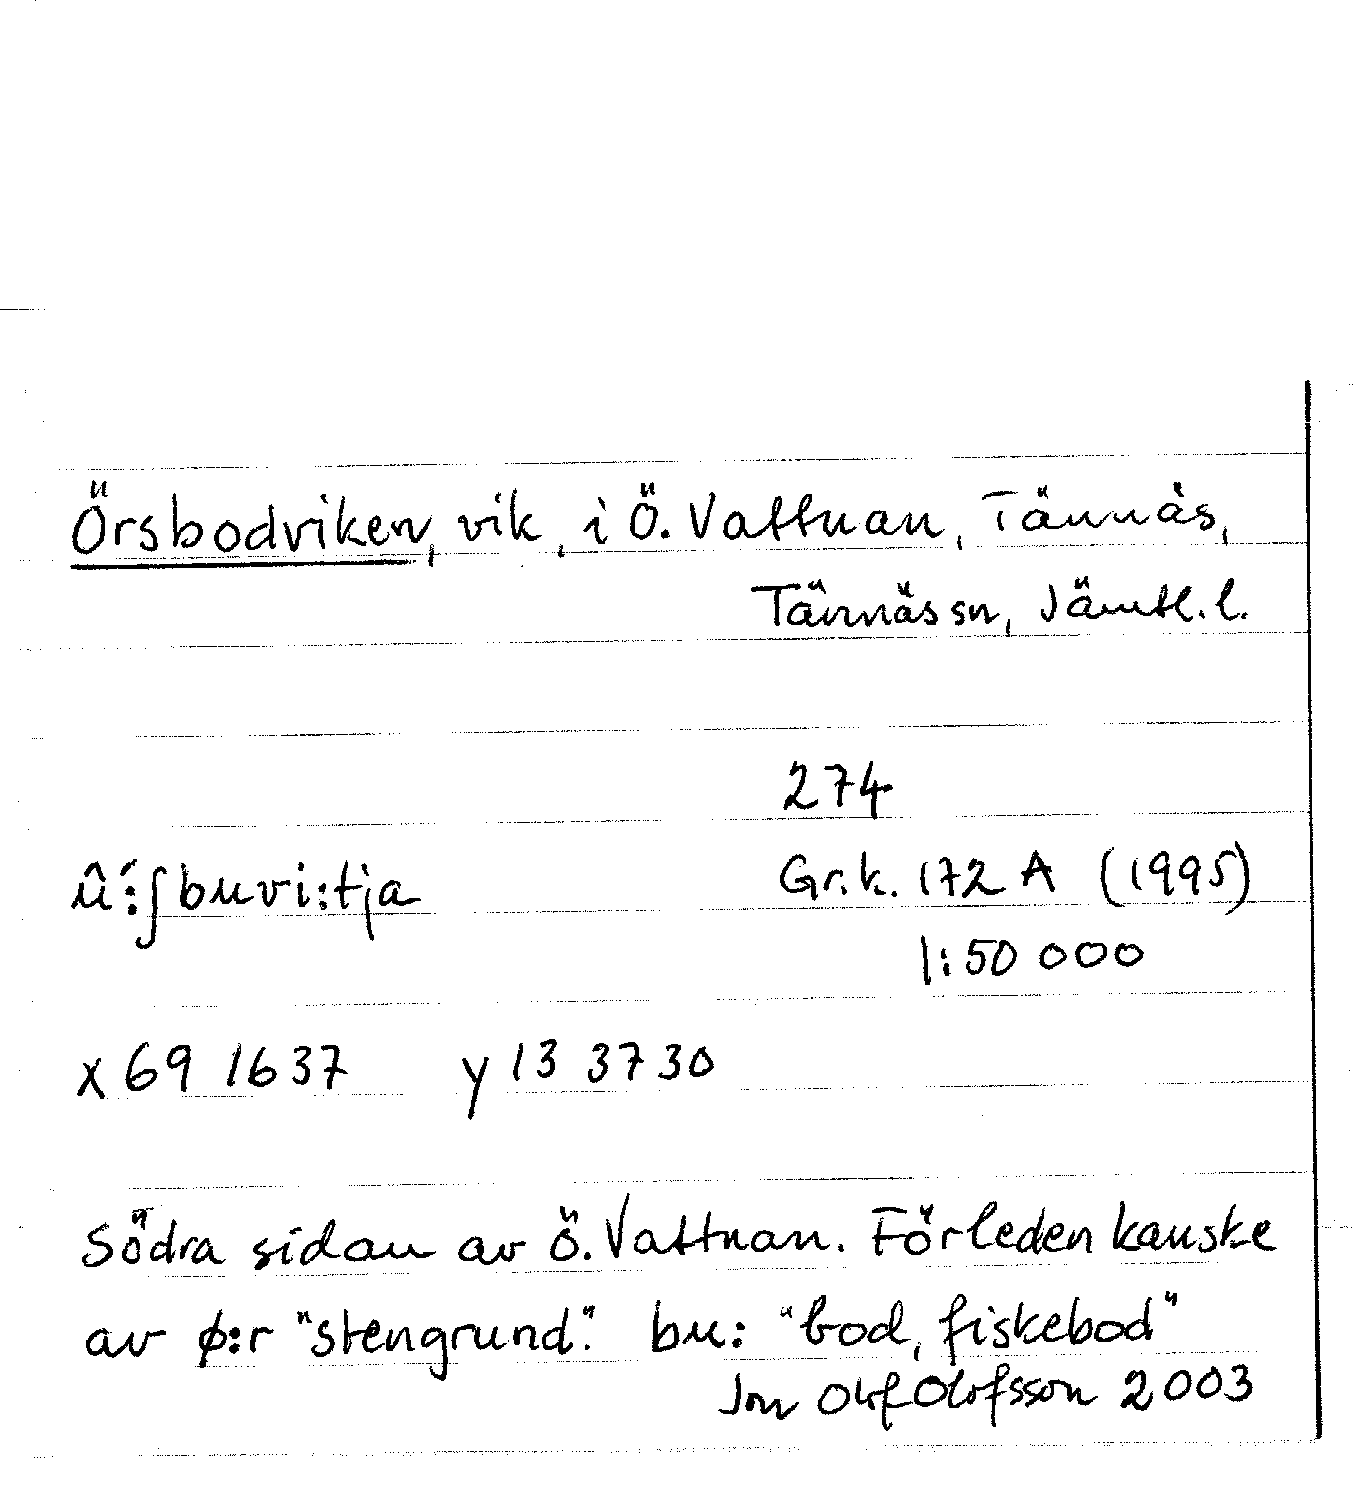 Örsbodviken, vik, i Ö. Vattnan, Tännäs,
Tännäs sn, Jämtl. l.
274
û´:ʃbuvi:tja Gr.k. 172 A (1995)
1:50 000
x 69 1637 y 13 3730
Södra sidan av Ö. Vattnan. Förleden kanske
av ø:r "stengrund". bu: "bod, fiskebod"
Jon Olof Olofsson 2003